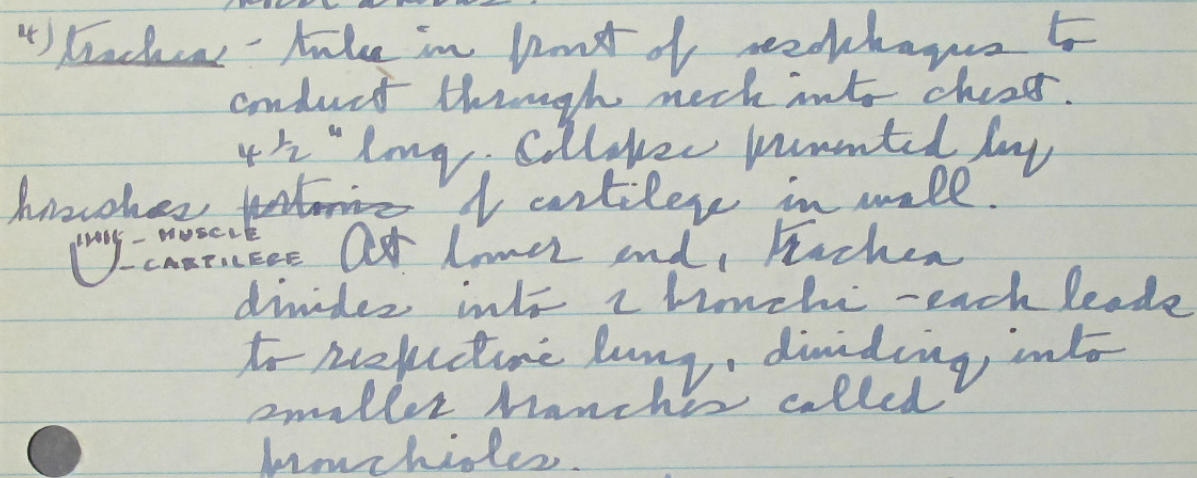 4) trachea - tube in front of oesophagus to
conduct through neck into chest.
4 1/2 " long. Collapse prevented by
horseshoes portions of cartilege in wall.
- MUSCLE
- CARTILEGE At lower end, trachea
divides into 2 bronchi - each leads
to respective lung, dividing into
smaller branches called
bronchioles.